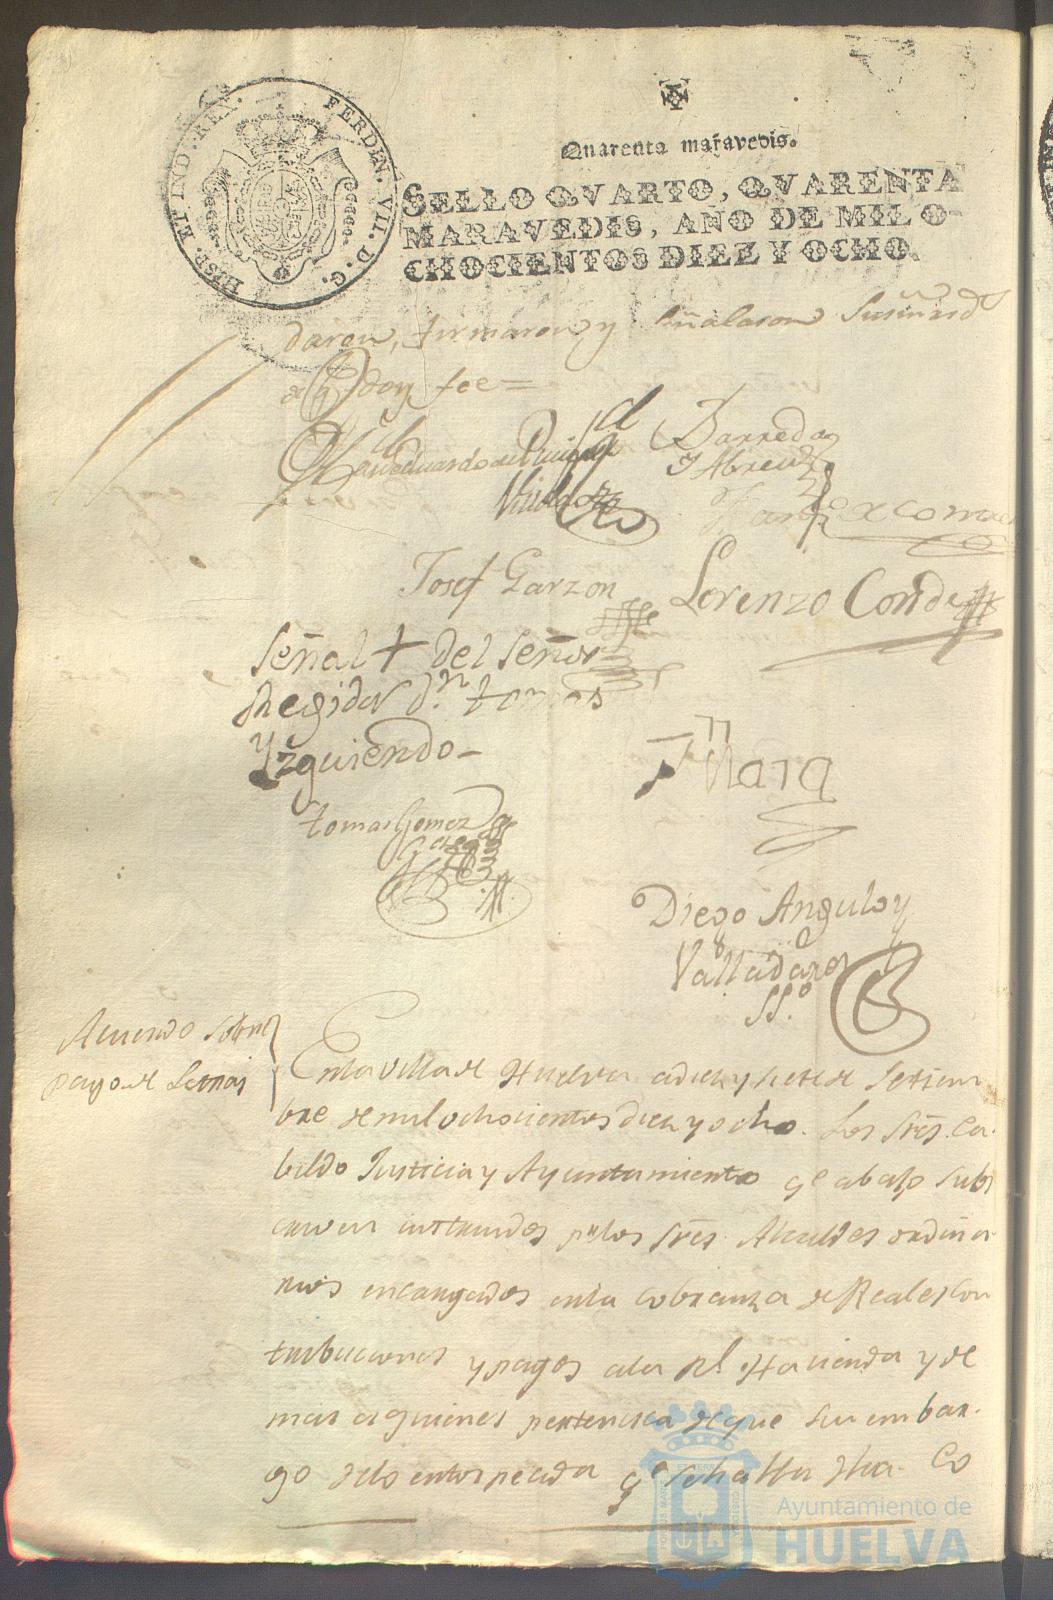 HISP. ET IND. REX. FERDIN. VII. D. G.
Quarenta maravedis.
SELLO QVARTO, QVARENTA
MARAVEDIS, AÑO DE MIL O-
CHOCIENTOS DIEZ Y OCHO.
daron, firmaron, y señalaron
doy fee =
Barreda
Y Abreu
Josef Garzon
Lorenzo Conde
Señal + del Señor
Regidor d.n tomas
Yzquierdo -
Mara
tomas Gomez
Diego Angulo y
Valladares
SS.o
Acuerdo sobre
pago de
En la Villa de Huelva a diez y siete de Setiem
bre de mil ochocientos diez y ocho. Los Sres. Ca-
bildo Justicia y Ayuntamiento q.e abajo subs
por los Sres. Alcaldes ordina
rios encargados en la cobranza de Reales Con
tribuciones y pagos a la Rl. Hacienda y de
mas a quienes pertenesca de que sin embar-
go de lo entorpecida q.e se halla dha. Co
Ayuntamiento de
HUELVA